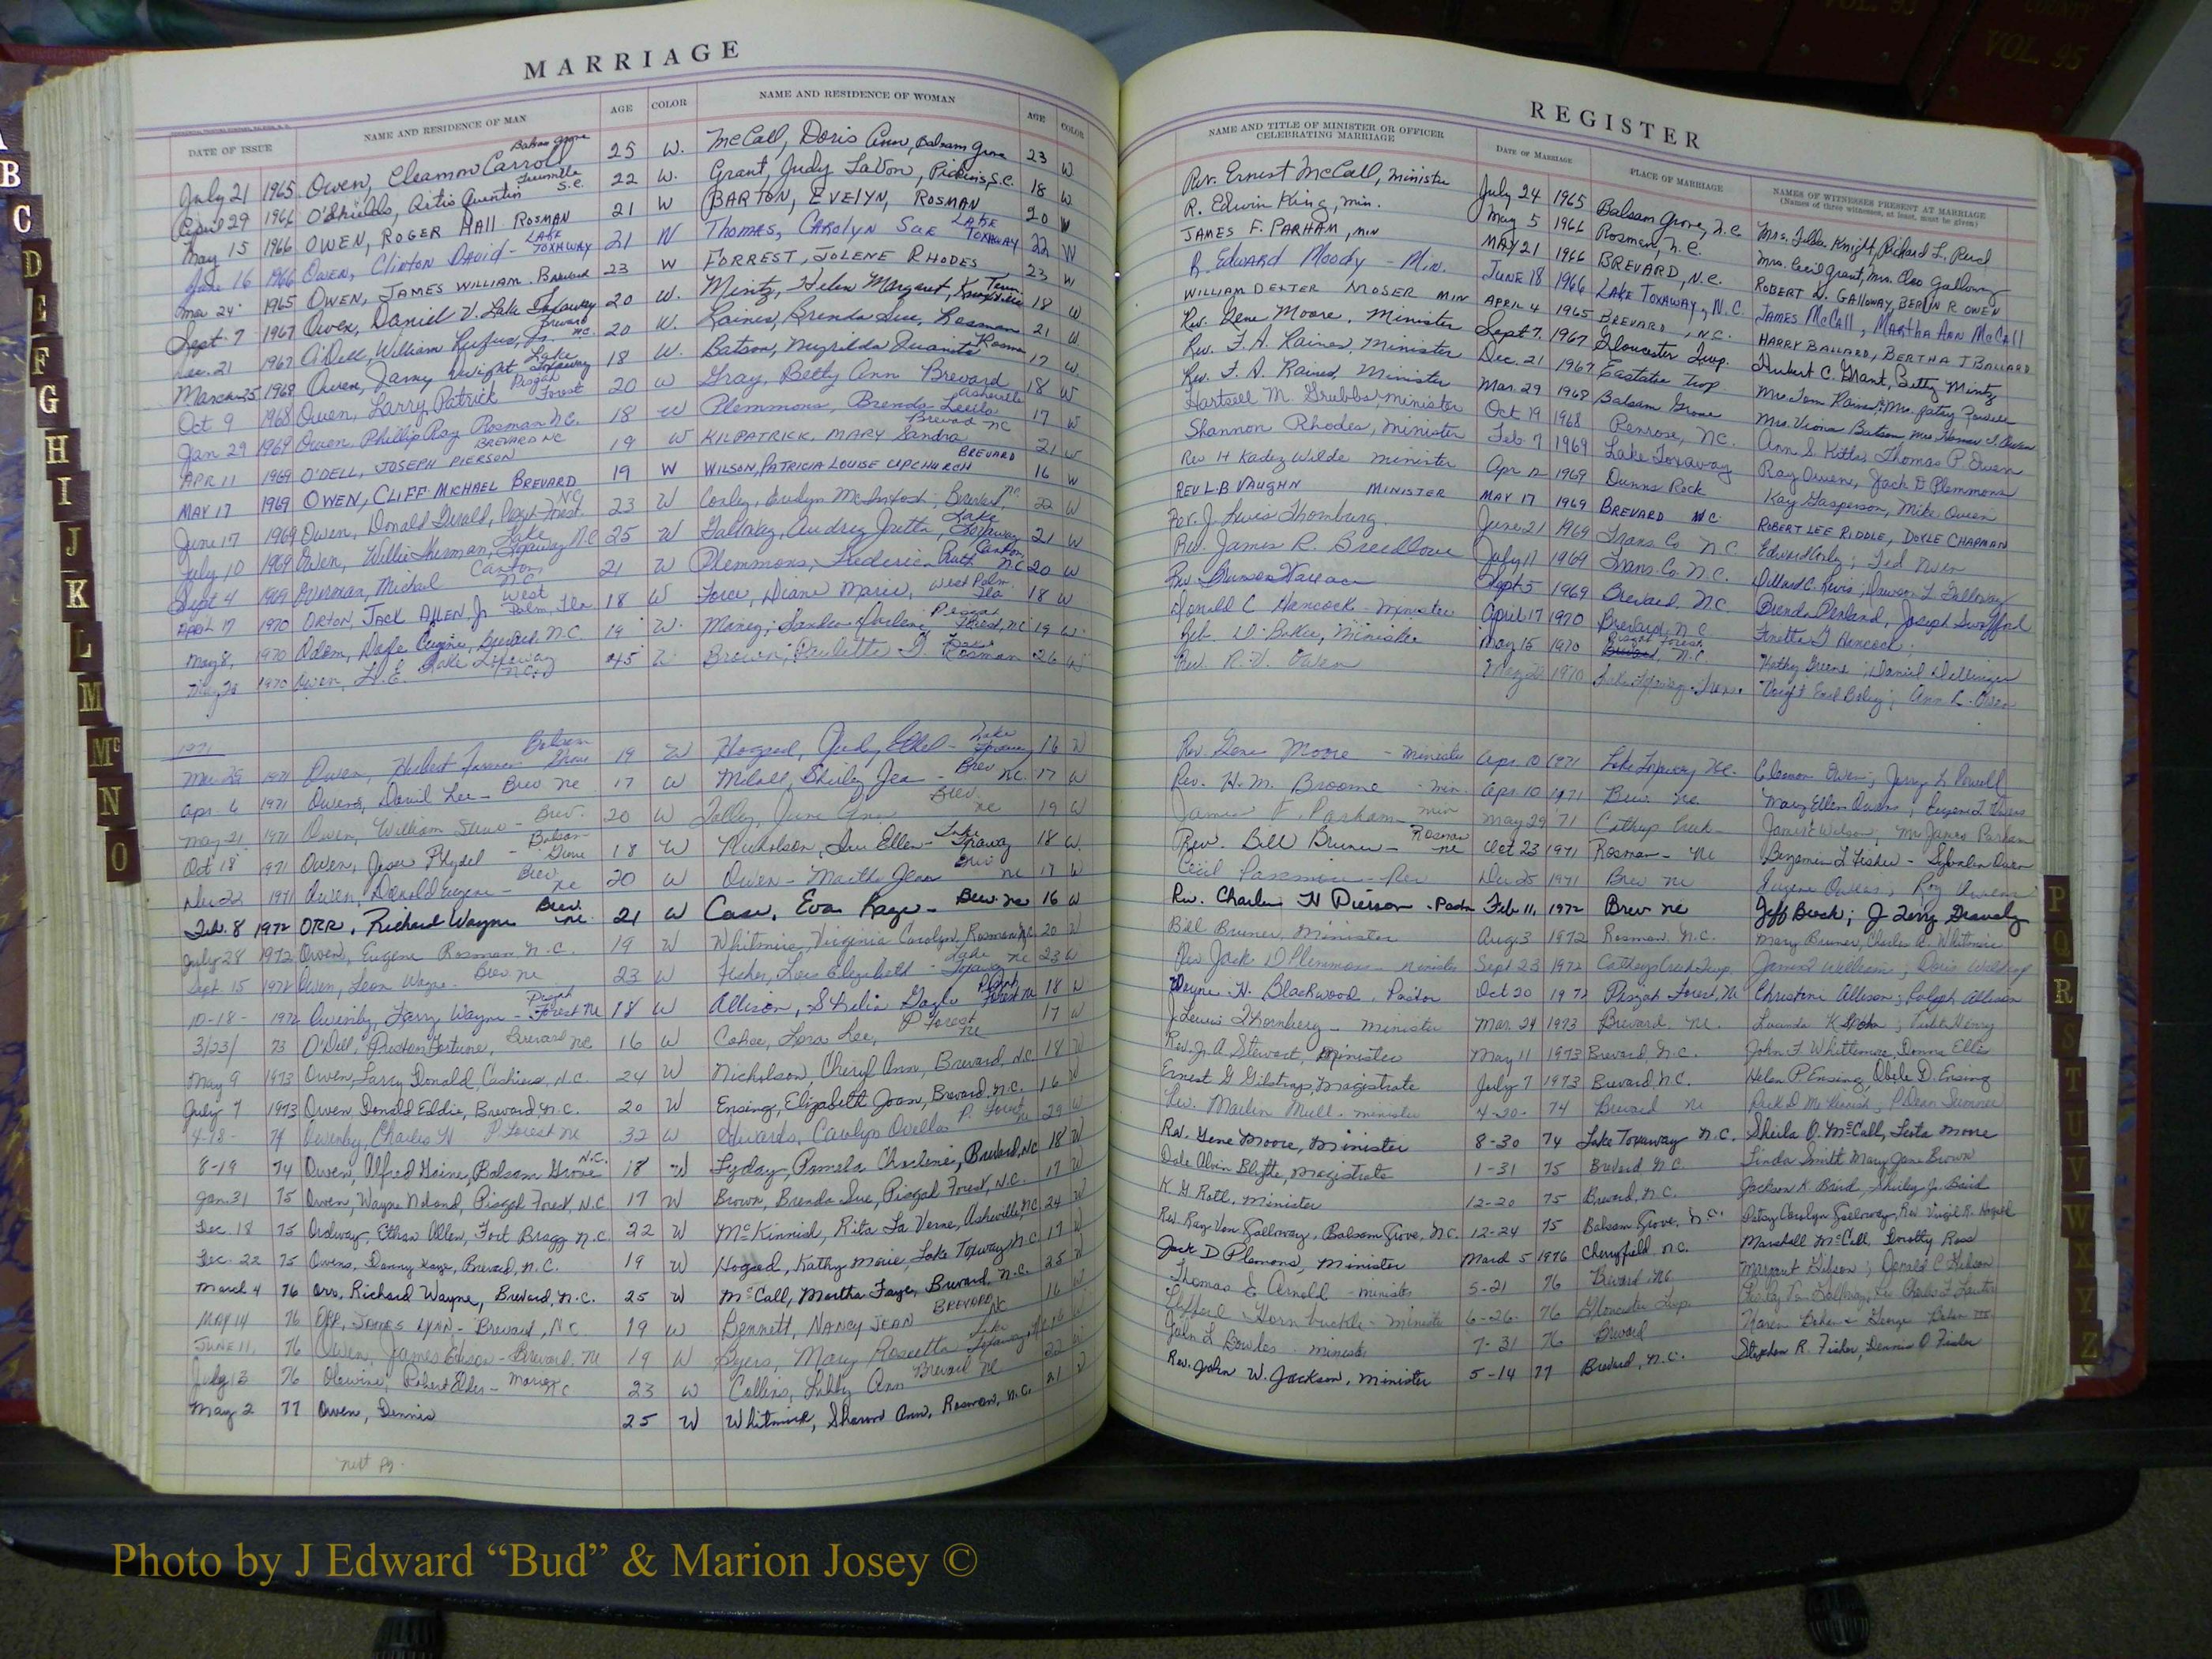 COUNTY
VOL. 95
MARRIAGE
REGISTER
DATE OF ISSUE NAME AND RESIDENCE OF MAN AGE COLOR NAME AND RESIDENCE OF WOMAN AGE COLOR
NAME AND TITLE OF MINISTER OR OFFICER CELEBRATING MARRIAGE DATE OF MARRIAGE PLACE OF MARRIAGE NAMES OF WITNESSES PRESENT AT MARRIAGE
(Names of three witnesses, at least, must be given)
July 21 1965 Owen, Cleamon Carroll Balsam Grove 25 W. McCall, Doris Ann, Balsam Grove 23 W
April 29 1966 O'Shields, Artis Quentin S.C. 22 W. Grant, Judy LaVon, Pickens, S.C. 18 W
May 15 1966 OWEN, ROGER HALL ROSMAN 21 W BARTON, EVELYN, ROSMAN 20 W
June 16 1966 Owen, Clinton David - LAKE TOXAWAY 21 W Thomas, CAROLYN SUE LAKE TOXAWAY 22 W
Mar 24 1965 OWEN, JAMES WILLIAM. Brevard 23 W FORREST, JOLENE RHODES 23 W
Sept. 7 1967 Owen, Daniel V. Lake Toxaway 20 W. Mintz, Helen Margaret, Knoxville Tenn. 18 W
Dec. 21 1967 O'Dell, William Rufus, Jr. Brevard N.C. 20 W. Raines, Brenda Sue, Rosman 21 W
March 25 1968 Owen, Jamy Dwight, Lake Toxaway 18 W. Batson, Juanita Rosman 17 W
Oct 9 1968 Owen, Larry Patrick Pisgah Forest 20 W Gray, Betty Ann Brevard 18 W
Jan 29 1969 Owen Phillip Ray Rosman N.C. 18 W Plemmons, Brenda Asheville 17 W
APR 11 1969 O'DELL, JOSEPH PIERSON BREVARD NC 19 W KILPATRICK, MARY Sandra Brevard NC 21 W
MAY 17 1969 OWEN, CLIFF MICHAEL BREVARD 19 W WILSON, PATRICIA LOUISE UPCHURCH BREVARD 16 W
June 17 1969 Owen, Donald Gerald, Pisgah Forest. N.C. 23 W Conley, Evelyn McIntosh; Brevard, N.C. 22 W
July 10 1969 Owen, Willie Sherman, Lake Toxaway N.C 25 W Galloway, Audrey Lake Toxaway 21 W
Sept 4 1969 Overman, Michael Canton N.C. 21 W Plemmons, Ruth Canton N.C 20 W
APRIL 17 1970 ORTON, JACK ALLEN, Jr. West Palm, Fla 18 W Force, Diane Marie, West Palm Fla 18 W
May 8, 1970 Odom, Dale Eugene, Brevard. N.C 19 W. Pisgah Forest, N.C 19 W.
1970 Owen, Lake Toxaway N.C. 45 W Brown, Paulette Rosman 26 W
1971
Mar. 29 1971 Owen, Hubert Balsam Grove 19 W Hogsed, Judy Ethel - Lake Toxaway 16 W
Apr. 6 1971 Owens, David Lee - Brev NC 17 W McCall, Shirley Jea - Brev NC. 17 W
May 21 1971 Owen, William Steve - Brev. 20 W Talley, June Brev. NC 19 W
Oct 18 1971 Owen, Jesse - Balsam Grove 18 W Nicholson, Sue Ellen - Lake Toxaway 18 W.
Dec 22 1971 Owen, Donald Eugene - Brev. NC 20 W Owen - Martha Jean Brev NC 17 W
Feb. 8 1972 ORR, Richard Wayne Brev. NC. 21 W Case, Eva Kaye - Brev. NC 16 W
July 28 1972 Owen, Eugene Rosman N.C. 19 W Whitmire, Virginia Carolyn, Rosman NC 20 W
Sept 15 1972 Owen, Leon Wayne - Brev NC 23 W Fisher, Lois Elizabeth - Lake Toxaway NC 23 W
10-18- 1972 Owenby, Larry Wayne - Pisgah Forest NC 18 W Allison, Shelia Gayle Pisgah Forest NC 18 W
3/23/ 73 O'Dell, Preston Fortune, Brevard NC 16 W Cohee, Lora Lee, P Forest NC 17 W
May 9 1973 Owen, Larry Donald, Cashiers, N.C. 24 W Nicholson, Cheryl Ann, Brevard, N.C. 18 W
July 7 1973 Owen Donald Eddie, Brevard, N.C. 20 W Ensing, Elizabeth Joan, Brevard, N.C. 16 W
4-18- 74 Owenby, Charles H P Forest NC 32 W Edwards, Carolyn P. Forest NC 29 W
8-19 74 Owen, Alfred Gaine, Balsam Grove N.C. 18 W Lyday, Pamela Charlene, Brevard, NC 18 W
Jan. 31 75 Owen Wayne Noland, Pisgah Forest, N.C 17 W Brown, Brenda Sue, Pisgah Forest, N.C. 17 W
Dec. 18 75 Ordway, Ethan Allen, Fort Bragg N.C. 22 W McKinnish, Rita La Verne, Asheville, N.C 24 W
Dec. 22 75 Owens, Danny Kaye, Brevard, N.C. 19 W Hogsed, Kathy Marie, Lake Toxaway N.C 17 W
March 4 76 Orr, Richard Wayne, Brevard, N.C. 25 W McCall, Martha Faye, Brevard, N.C. 25 W
MAY 14 76 ORR, JAMES LYNN - Brevard, N.C 19 W Bennett, NANCY JEAN BREVARD NC 16 W
JUNE 11, 76 Owen, James - Brevard, NC 19 W Byers, Mary Lake Toxaway
July 13 76 Robert 23 W Collins, Libby Ann Brevard NC 22 W
May 2 77 Owen, Dennis 25 W Whitmire, Sharon Ann, Rosman, N.C. 21 W
next pg.
Rev. Ernest McCall, minister July 24 1965 Balsam Grove, N.C Mrs. Knight, Richard L. Reid
R. Edwin King, min. May 5 1966 Rosman, N.C. Mrs. Cecil Grant, Mrs. Cleo Galloway
JAMES F. PARHAM, MIN MAY 21 1966 BREVARD, N.C. ROBERT D. GALLOWAY, BERLIN R OWEN
R. Edward Moody - Min. JUNE 18 1966 LAKE TOXAWAY, N.C. JAMES McCall, MARTHA ANN McCALL
WILLIAM DEXTER MOSER MIN APRIL 4 1965 BREVARD, N.C. HARRY BALLARD, BERTHA J BALLARD
Rev. Gene Moore, Minister Sept 7, 1967 Gloucester Twp. Hubert C. Grant, Betty Mintz
Rev. F. A. Raines, Minister Dec. 21 1967 Eastatoe Twp. Mrs Tom Raines, Mrs. Patsy
Rev. F. A. Raines, Minister Mar. 29 1968 Balsam Grove Mrs. Verona Batson, Mrs. Homer Owen
Hartsell M. Grubbs, minister Oct 19 1968 Penrose, N.C. Ann S. Kitts, Thomas P. Owen
Shannon Rhodes, minister Feb. 7 1969 Lake Toxaway Ray Owen, Jack D Plemmons
Rev H Kadez Wilde minister Apr 12 1969 Dunns Rock Kay Gasperson, Mike Owen
REV L.B VAUGHN MINISTER MAY 17 1969 BREVARD NC ROBERT LEE RIDDLE, DOYLE CHAPMAN
Rev. J. Lewis Thornburg June 21 1969 Trans. Co N C Edward Conley; Ted Owen
Rev. James R. Breedlove July 11 1969 Trans. Co. N.C. Dillard C. Lewis; Dawson L. Galloway
Rev. Wallace Sept 5 1969 Brevard. N C Brenda Penland, Joseph Swofford
Donald C Hancock - Minister April 17 1970 Brevard, N.C. Hancock;
Minister May 15 1970 Pisgah Forest, N.C. Kathy Greene; Daniel Dellinger
Rev. R.V. Owen 1970 Ann L. Owen
Rev. Gene Moore - minister Apr. 10 1971 Lake Toxaway NC. Cleamon Owen; Jerry L Powell
Rev. H.M. Broome - min. Apr. 10 1971 Brev. NC. Mary Ellen Owens; Eugene L. Owens
James F. Parham - min May 29 71 Catheys Creek - Janice Wilson; Mrs James Parham
Rev. Bill Bruner - Rosman NC Oct 23 1971 Rosman - NC Benjamin L Fisher - Owen
Cecil Passmore - Rev Dec 25 1971 Brev NC Eugene Owens; Roy Owens
Rev. Charles H Pierson - Pastor Feb 11, 1972 Brev NC Jeff Buck; J Terry Gravely
Bill Bruner, Minister Aug. 3 1972 Rosman, N.C. Mary Bruner, Charles A. Whitmire
Rev Jack D Plemmons - minister Sept 23 1972 Catheys Creek Twp. James Williams; Doris
Wayne H. Blackwood, Pastor Oct 20 1972 Pisgah Forest, NC Christine Allison; Ralph Allison
J. Lewis Thornberg - minister Mar. 24 1973 Brevard. NC.
Rev. J. A. Stewart, Minister May 11 1973 Brevard, N.C. John F Whittemore, Donna Ellis
Ernest G Gilstrap, Magistrate July 7 1973 Brevard N.C. Helen P. Ensing, Obele D. Ensing
Rev. Marlin Mull - minister 4-20- 74 Brevard NC
Rev. Gene Moore, Minister 8-30 74 Lake Toxaway N.C. Sheila O. McCall, Leota Moore
Dale Alvin Blythe, Magistrate 1-31 75 Brevard N.C. Linda Smith Mary Jane Brown
K. G. Roth, minister 12-20 75 Brevard, N.C. Jackson K. Baird, Shirley J. Baird
Rev. Ray Von Galloway, Balsam Grove, N.C. 12-24 75 Balsam Grove, N.C. Patsy Carolyn Galloway, Rev Virgil R. Hogsed
Jack D Plemons, minister March 5 1976 Cherryfield, N.C. Marshall McCall, Dorothy Ross
Thomas E Arnold - minister 5-21 76 Brevard, NC Margaret Gibson; Donald C Gibson
Clifford Hornbuckle - minister 6-26- 76 Gloucester Twp.
John L Bowles minister 7-31 76 Brevard
Rev. John W. Jackson, minister 5-14 77 Brevard, N.C. Stephen R. Fisher, Dennis O Fisher
B
C
D
E
F
G
H
I
J
K
L
M
Mc
N
O
P
Q
R
S
T
U
V
W
X
Y
Z
Photo by J Edward “Bud” & Marion Josey ©